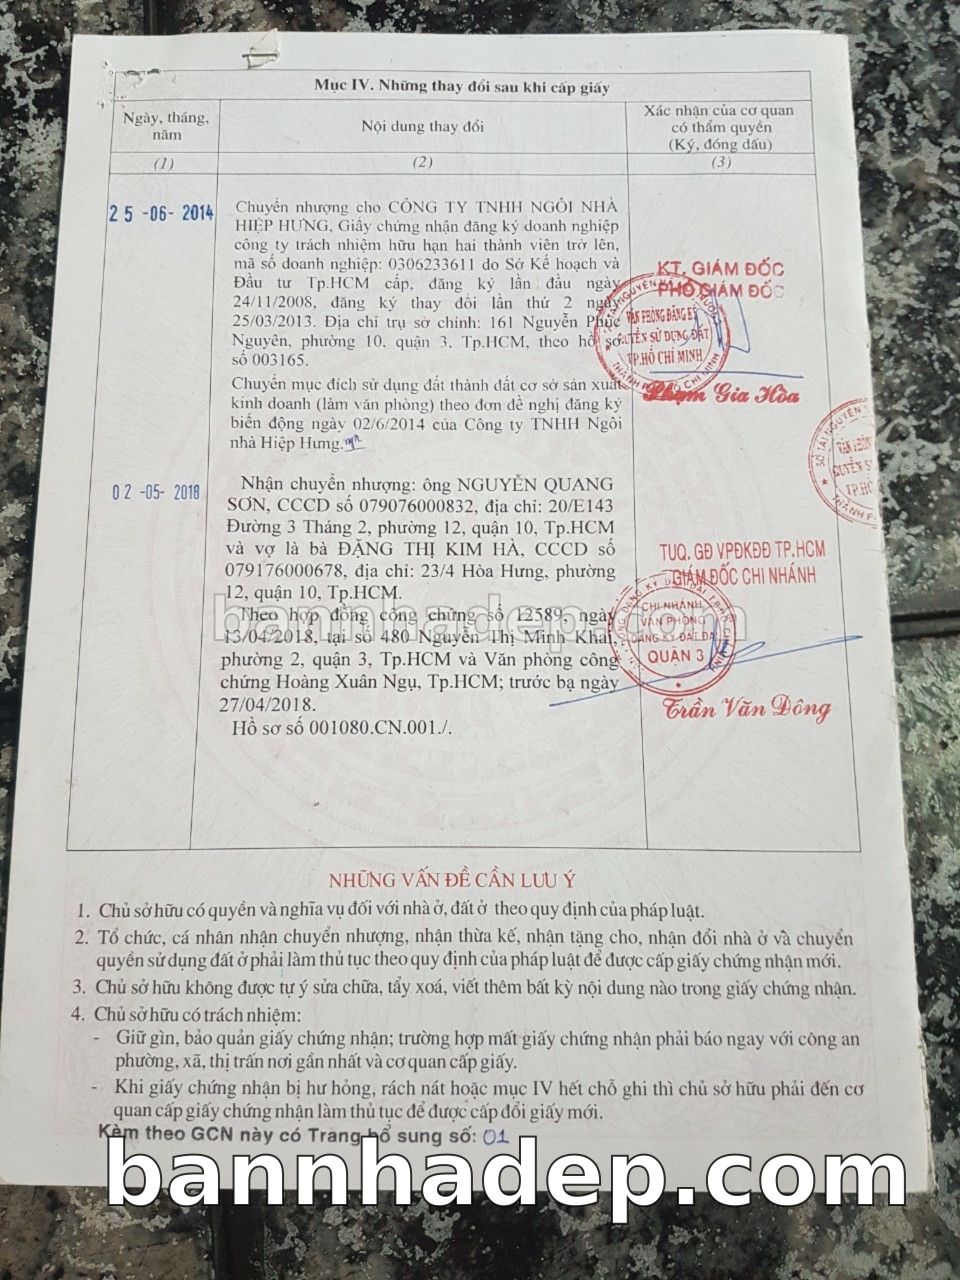 Mục IV. Những thay đổi sau khi cấp giấy
Ngày, tháng, năm
Nội dung thay đổi
Xác nhận của cơ quan có thẩm quyền (Ký, đóng dấu)
(1)
(2)
(3)
25-06-2014
Chuyển nhượng cho CÔNG TY TNHH NGÔI NHÀ
HIỆP HƯNG, Giấy chứng nhận đăng ký doanh nghiệp
công ty trách nhiệm hữu hạn hai thành viên trở lên,
mã số doanh nghiệp: 0306233611 do Sở Kế hoạch và
Đầu tư Tp.HCM cấp, đăng ký lần đầu ngày
24/11/2008, đăng ký thay đổi lần thứ 2 ngày
25/03/2013. Địa chỉ trụ sở chính: 161 Nguyễn Phúc
Nguyên, phường 10, quận 3. Tp.HCM, theo hồ sơ
số 003165.
Chuyển mục đích sử dụng đất thành đất cơ sở sản xuất
kinh doanh (làm văn phòng) theo đơn đề nghị đăng ký
biến động ngày 02/6/2014 của Công ty TNHH Ngôi
nhà Hiệp Hưng.
KT. GIÁM ĐỐC
PHÓ GIÁM ĐỐC
VĂN PHÒNG ĐĂNG KÝ
QUYỀN SỬ DỤNG ĐẤT
TP.HỒ CHÍ MINH
Phạm Gia Hòa
SỞ TÀI NGUYÊN
VĂN PHÒNG
QUYỀN SỬ
TP.HỒ
02-05-2018
Nhận chuyển nhượng: ông NGUYỄN QUANG
SƠN, CCCD số 079076000832, địa chỉ: 20/E143
Đường 3 Tháng 2, phường 12, quận 10, Tp.HCM
và vợ là bà ĐẶNG THỊ KIM HÀ, CCCD số
079176000678, địa chỉ: 23/4 Hòa Hưng, phường
12, quận 10, Tp.HCM.
Theo hợp đồng công chứng số 12589, ngày
13/04/2018, tại số 480 Nguyễn Thị Minh Khai,
phường 2, quận 3, Tp.HCM và Văn phòng công
chứng Hoàng Xuân Ngụ, Tp.HCM; trước bạ ngày
27/04/2018.
Hồ sơ số 001080.CN.001./.
TUQ. GĐ VPĐKĐĐ TP.HCM
GIÁM ĐỐC CHI NHÁNH
CHI NHÁNH
VĂN PHÒNG
ĐĂNG KÝ ĐẤT ĐAI
QUẬN 3
Trần Văn Đông
bannhadep.com
NHỮNG VẤN ĐỀ CẦN LƯU Ý
1. Chủ sở hữu có quyền và nghĩa vụ đối với nhà ở, đất ở theo quy định của pháp luật.
2. Tổ chức, cá nhân nhận chuyển nhượng, nhận thừa kế, nhận tặng cho, nhận đổi nhà ở và chuyển
quyền sử dụng đất ở phải làm thủ tục theo quy định của pháp luật để được cấp giấy chứng nhận mới.
3. Chủ sở hữu không được tự ý sửa chữa, tẩy xoá, viết thêm bất kỳ nội dung nào trong giấy chứng nhận.
4. Chủ sở hữu có trách nhiệm:
- Giữ gìn, bảo quản giấy chứng nhận; trường hợp mất giấy chứng nhận phải báo ngay với công an
phường, xã, thị trấn nơi gần nhất và cơ quan cấp giấy.
- Khi giấy chứng nhận bị hư hỏng, rách nát hoặc mục IV hết chỗ ghi thì chủ sở hữu phải đến cơ
quan cấp giấy chứng nhận làm thủ tục để được cấp đổi giấy mới.
Kèm theo GCN này có Trang bổ sung số: 01
bannhadep.com